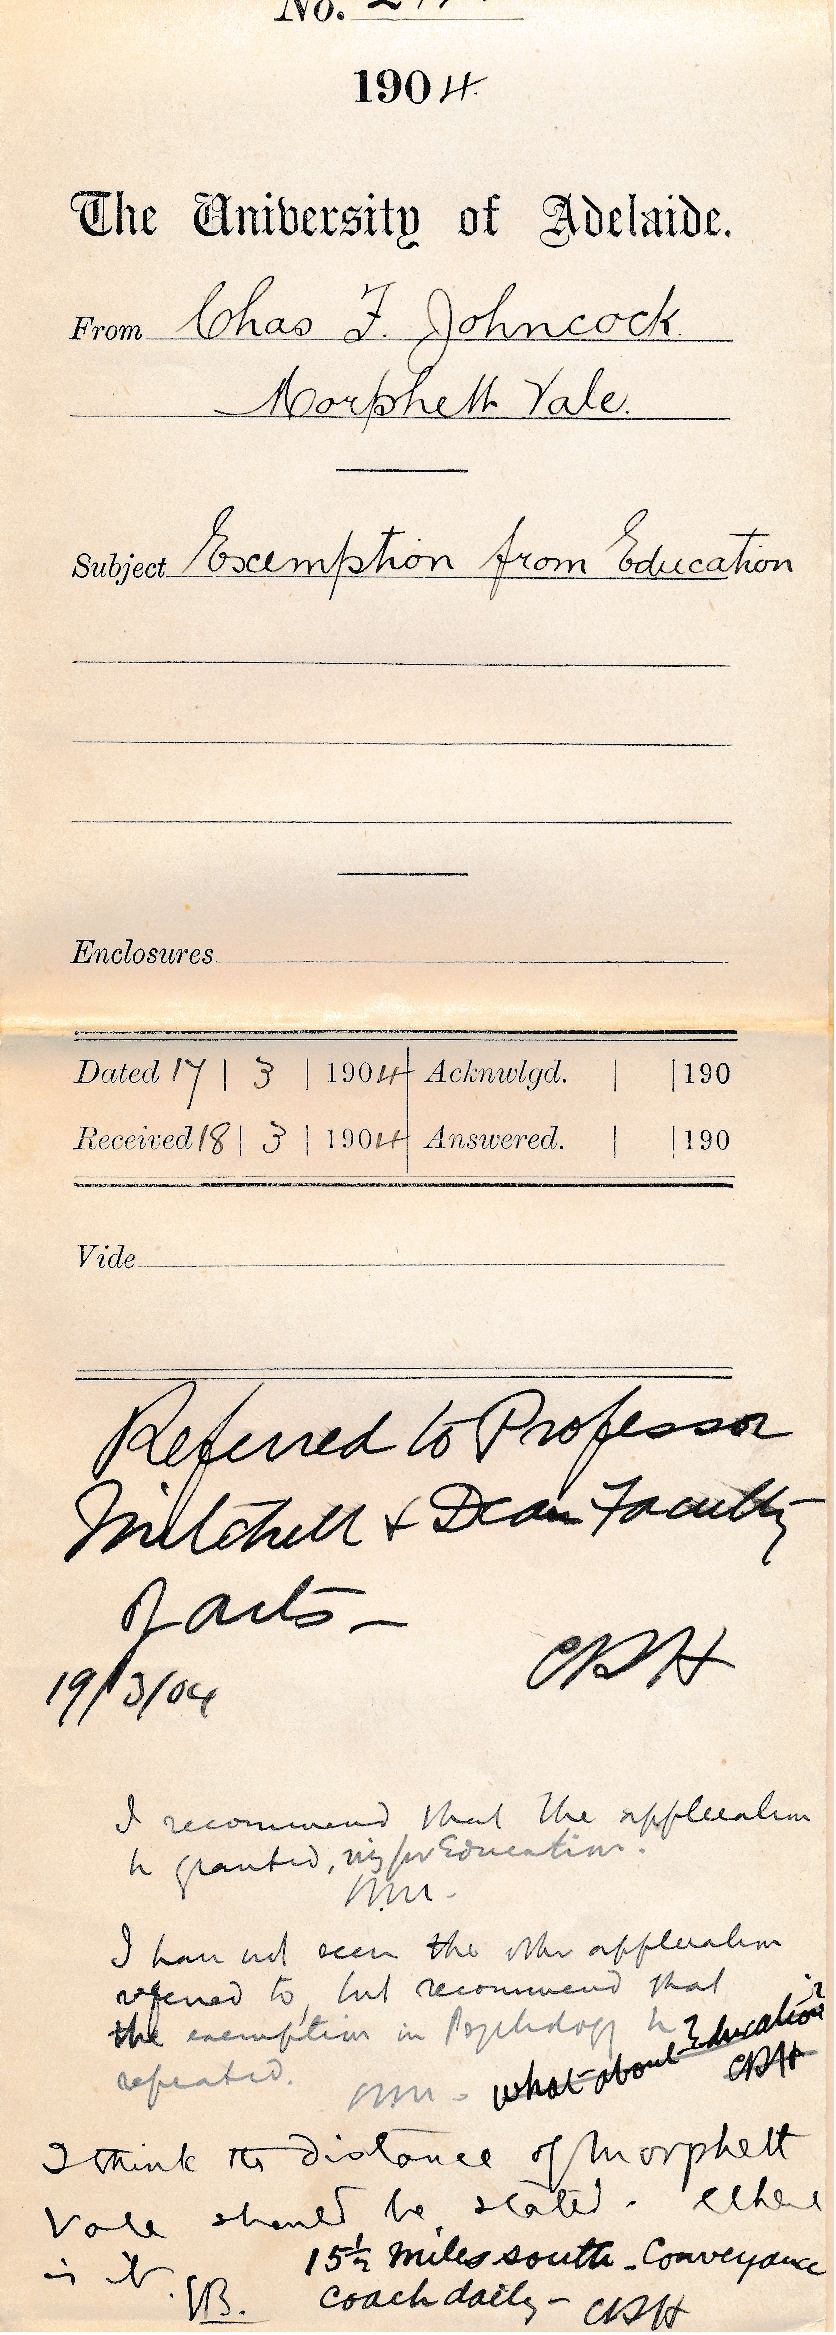 No.
1904
The University of Adelaide.
From Chas F. Johncock
Morphett Vale.
Subject Exemption from Education
Enclosures
Dated 17 | 3 | 1904 Acknwlgd. | | 190
Received 18 | 3 | 1904 Answered. | | 190
Vide
Referred to Professor
Mitchell & Dean Faculty
of Arts —
CRH
19/3/04
I recommend that the application
be granted, viz for Education.
WM.
I have not seen the other application
referred to, but recommend that
the exemption in Psychology be
repeated. WM.
What about Education?
CRH
I think the distance of Morphett
Vale should be stated. Where
is it. 
15½ miles south - Conveyance
coach daily - CRH